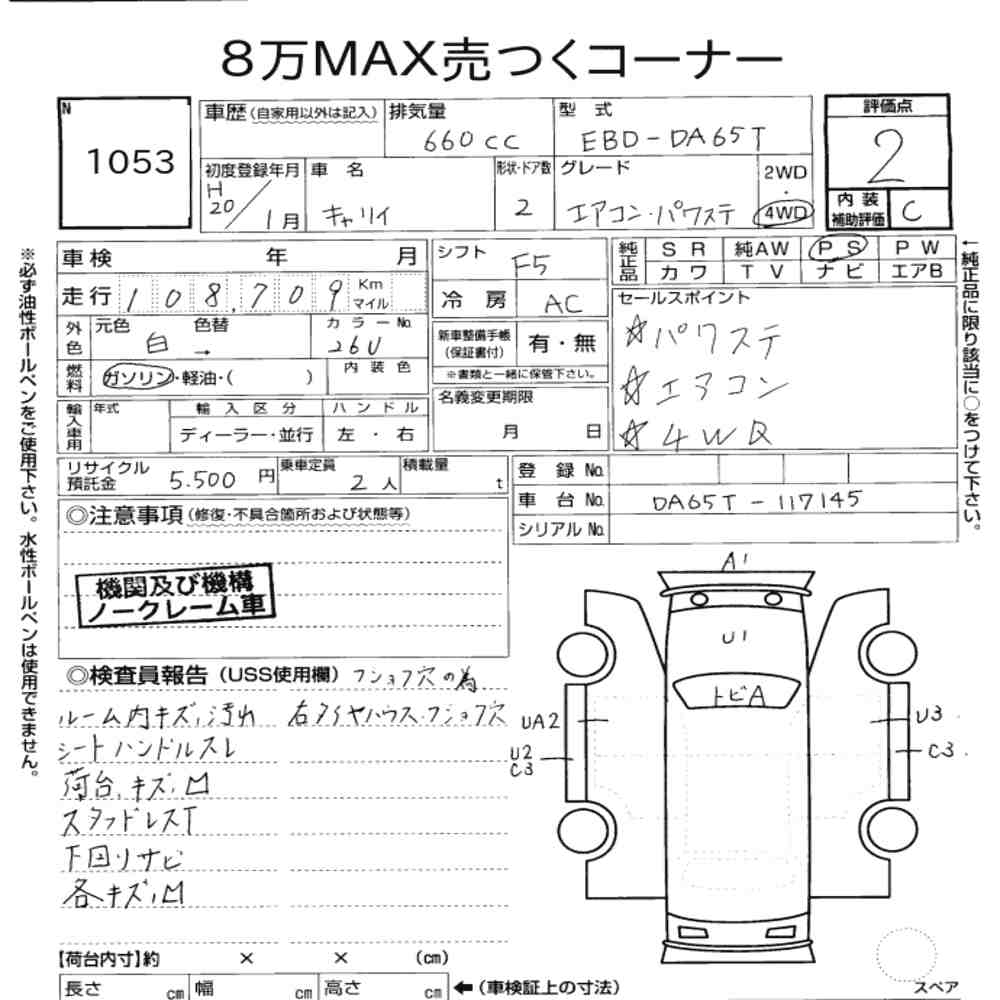 8万MAX売つくコーナー
N
1053
車歴(自家用以外は記入)
排気量
660cc
型式
EBD-DA65T
評価点
2
内装
補助評価
C
初度登録年月
H
20/1月
車名
キャリイ
形状・ドア数
2
グレード
エアコン・パワステ
2WD
・
4WD
車検 年 月
走行 108,709 Km マイル
外色 元色 白 色替 →
カラーNo.
26U
燃料 ガソリン・軽油・( )
内装色
輸入車用 年式
輸入区分
ディーラー・並行
ハンドル
左・右
シフト
F5
冷房
AC
新車整備手帳
(保証書付)
有・無
※書類と一緒に保管下さい。
名義変更期限
月 日
純正品 SR 純AW PS PW
カワ TV ナビ エアB
セールスポイント
☆パワステ
☆エアコン
☆4WD
リサイクル預託金 5.500円
乗車定員
2人
積載量
t
登録No.
車台No. DA65T-117145
シリアルNo.
◎注意事項(修復・不具合箇所および状態等)
機関及び機構
ノークレーム車
◎検査員報告(USS使用欄) フショフ穴の為
ルーム内キズ、汚れ 右タイヤハウス・フショフ穴
シートハンドルスレ
荷台、キズ、凹
スタッドレスT
下回りサビ
各キズ、凹
A1
U1
トビA
UA2
U2
C3
U3
C3
スペア
【荷台内寸】約 × × (cm)
長さ cm 幅 cm 高さ cm ←(車検証上の寸法)
※必ず油性ボールペンをご使用下さい。水性ボールペンは使用できません。
←純正品に限り該当に○をつけて下さい。